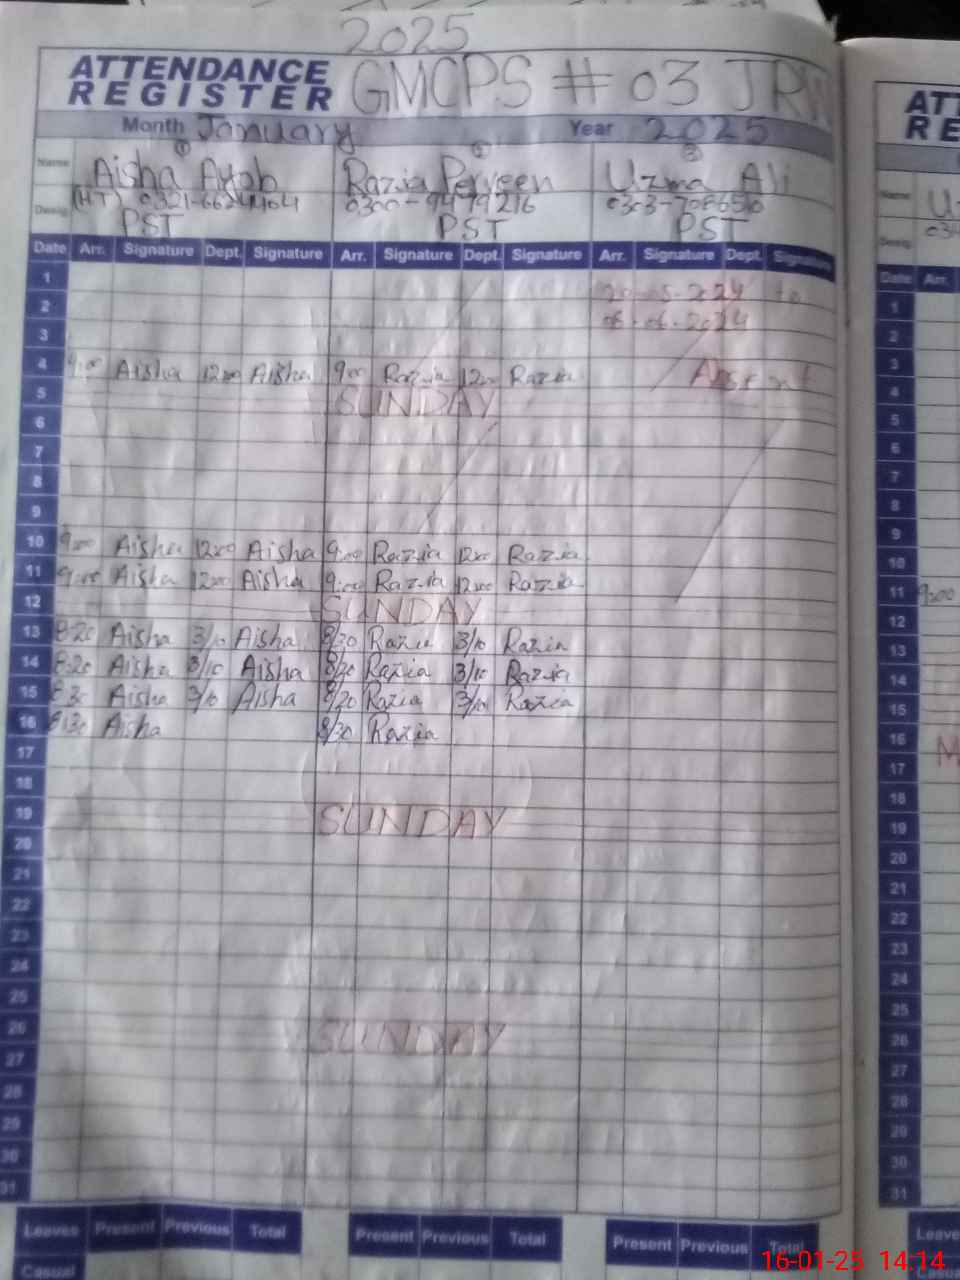 2025
ATTENDANCE REGISTER GMCPS # 03 JRW
Month January Year 2025
Name Aisha Ayob Razia Perveen Uzma Ali
Desig. (HT) 0300-9479216
PST PST PST
Date Arr. Signature Dept. Signature Arr. Signature Dept. Signature Arr. Signature Dept. Signature
1 2024 to
2 06-06-2024
3
4 9:00 Aisha 12:00 Aisha 9:00 Razia 12:00 Razia Absent
5 SUNDAY
6
7
8
9
10 9:00 Aisha 12:00 Aisha 9:00 Razia 12:00 Razia
11 9:00 Aisha 12:00 Aisha 9:00 Razia 12:00 Razia
12 SUNDAY
13 8:20 Aisha 3/10 Aisha 8/20 Razia 3/10 Razia
14 8:20 Aisha 3/10 Aisha 8/20 Razia 3/10 Razia
15 8:20 Aisha 3/10 Aisha 8/20 Razia 3/10 Razia
16 Aisha 8/30 Razia
17
18
19 SUNDAY
20
21
22
23
24
25
26 SUNDAY
27
28
29
30
31
Leaves Present Previous Total Present Previous Total Present Previous Total
Casual
ATT
RE
Name
Desig.
Date Arr.
1
2
3
4
5
6
7
8
9
10
11 9:00
12
13
14
15
16
17
18
19
20
21
22
23
24
25
26
27
28
29
30
31
16-01-25 14:14